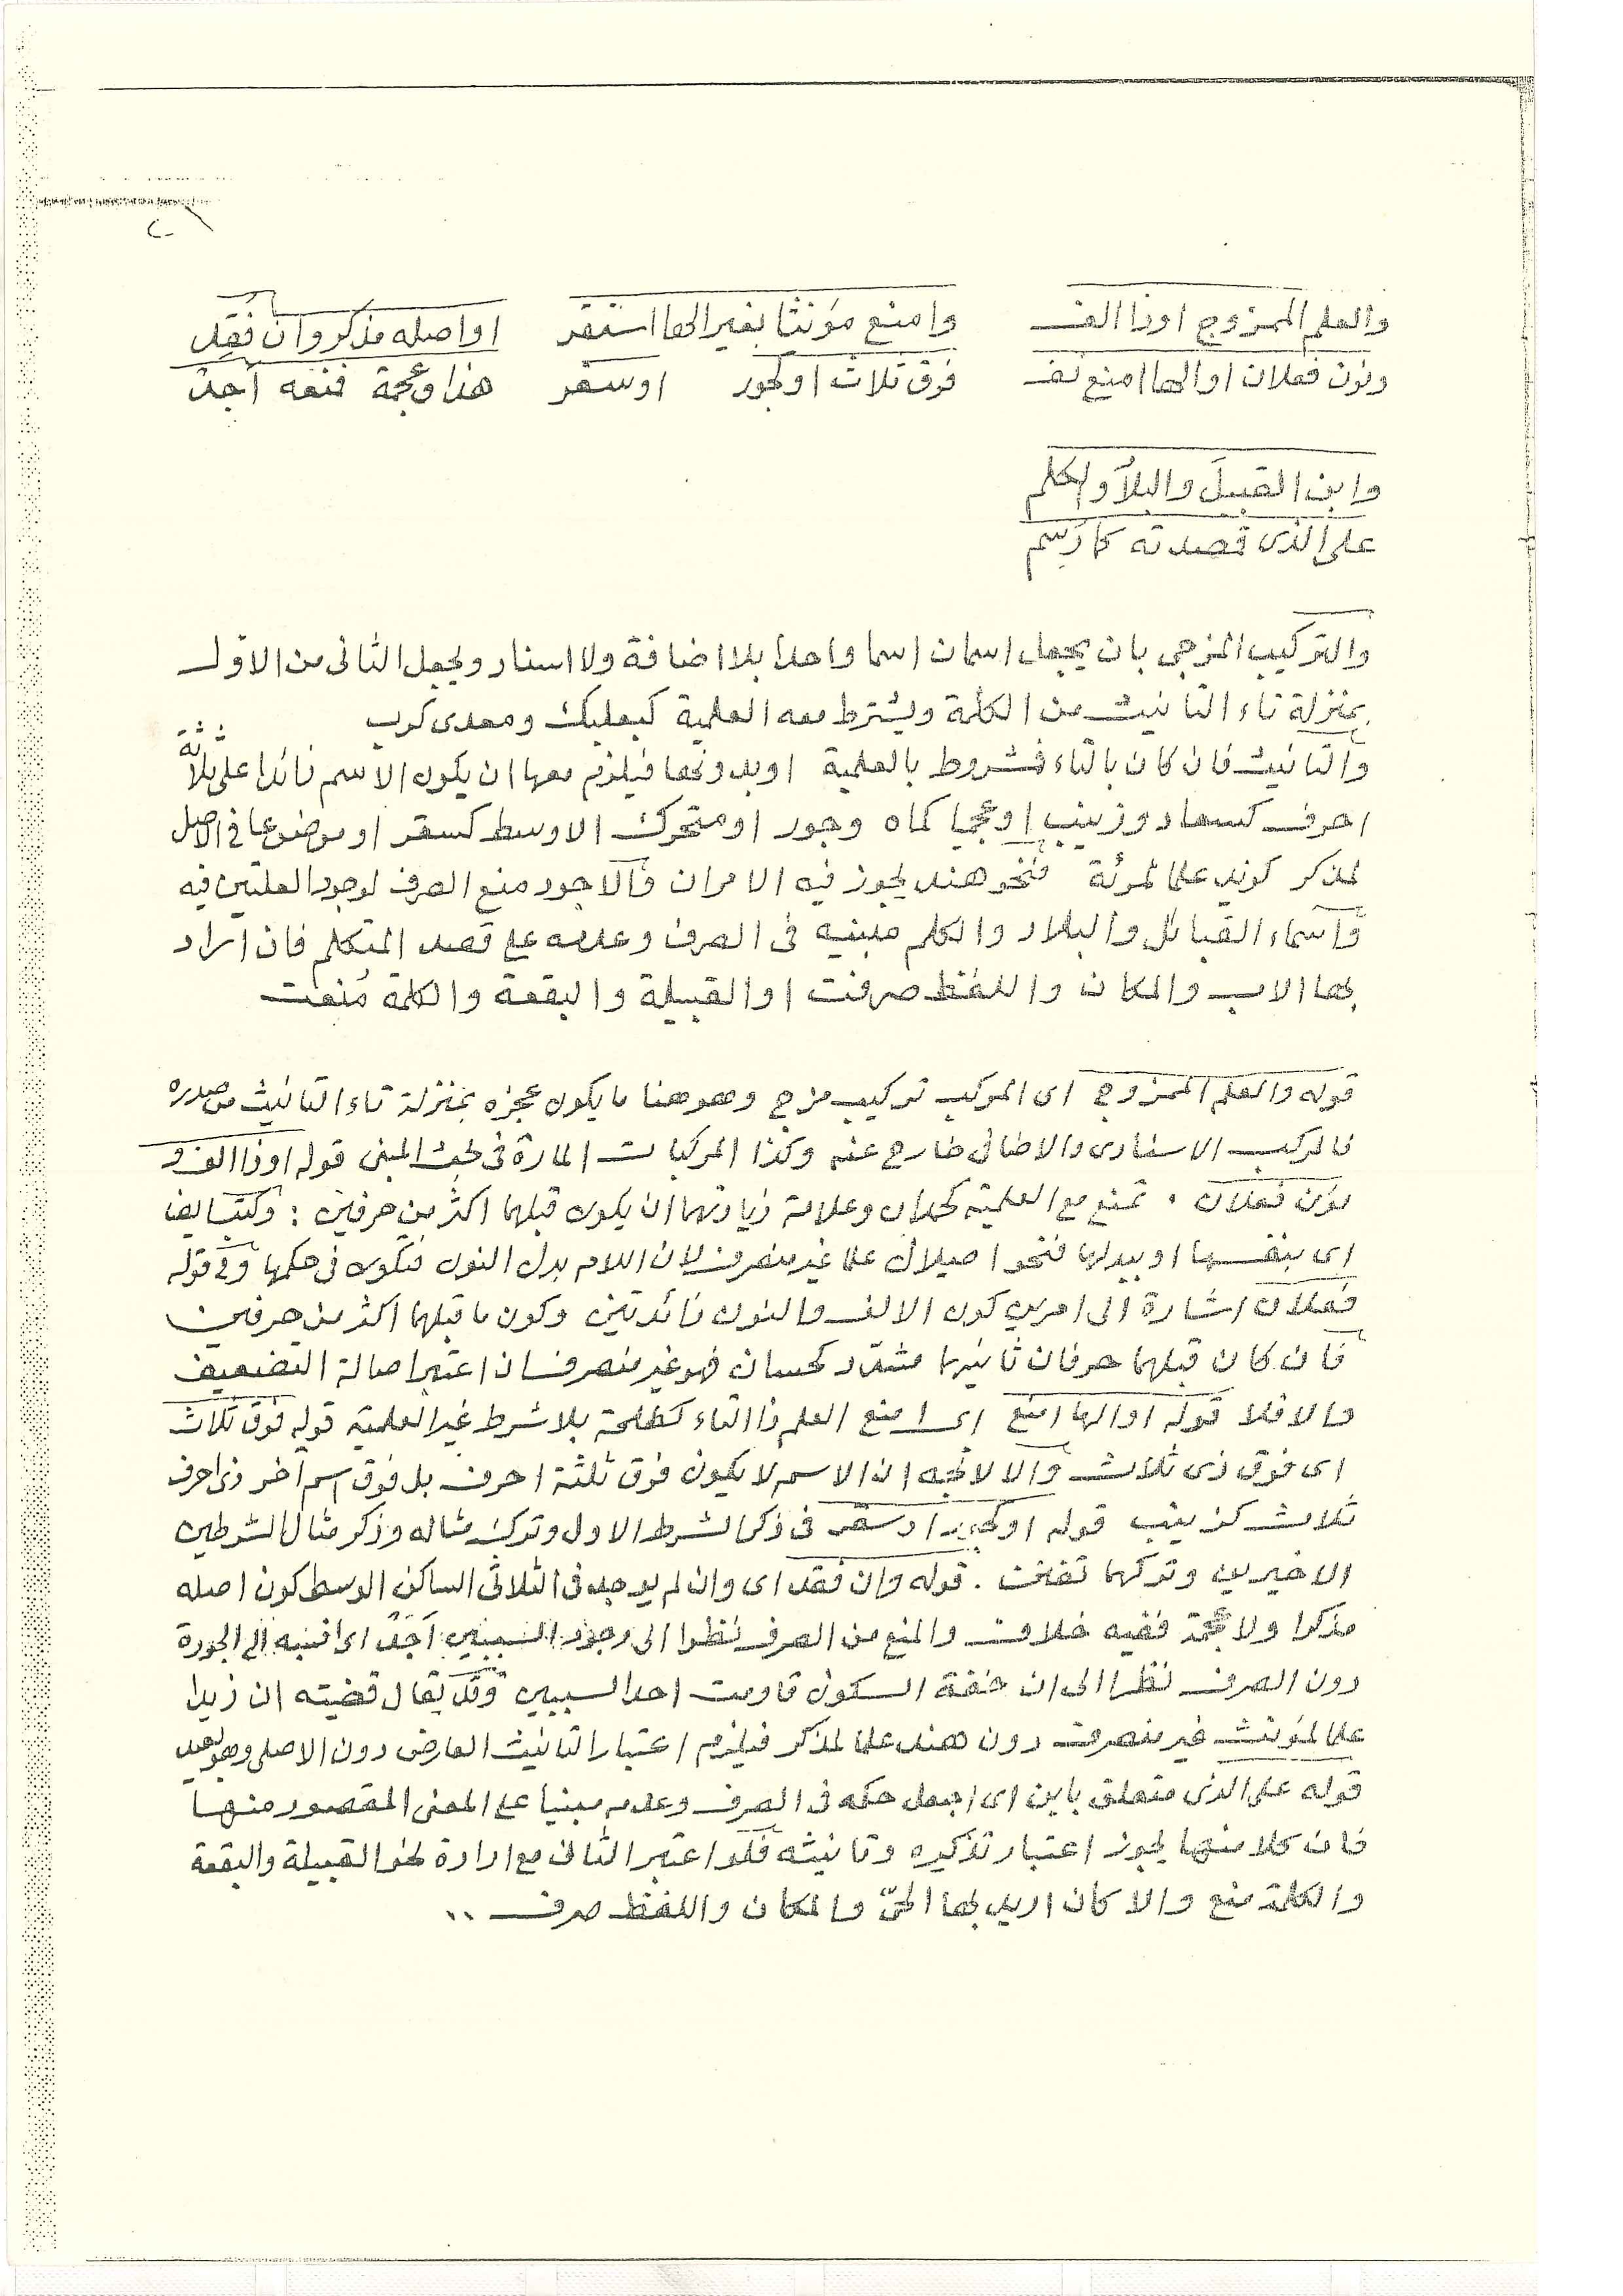 والعلم الممزوج اوذا الف وامنع مؤنثا بغير الها استقر او اصله مذكر وان فقد
ونون فعلان او الها امنع تف فوق ثلاث او كجور او سقر هذا وعجمة فمنعه اجد
وابن القبيل والبلاد والكلم
على الذى قصدته كما رسم
والتركيب المزجى بان يجعل اسمان اسما واحدا بلا اضافة ولا اسناد ويجعل الثانى من الاول
بمنزلة تاء التانيث من الكلمة ويشترط معه العلمية كبعلبك ومعدى كرب
والتانيث فان كان بالتاء فشروط بالعلمية او بدونها فيلزم معها ان يكون الاسم زائدا على ثلاثة
احرف كسعاد وزينب او عجميا كماه وجور او متحرك الاوسط كسقر او موضوعا فى الاصل
لمذكر كزيد علما لمرئة فنحو هند يجوز فيه الامران والاجود منع الصرف لوجود العلتين فيه
واسماء القبائل والبلاد والكلم مبنيه فى الصرف وعدمه على قصد المتكلم فان اراد
بها الاب والمكان واللفظ صرفت او القبيلة والبقعة والكلمة منعت
قوله والعلم الممزوج اى المركب تركيب مزج وهو هنا ما يكون عجزه بمنزلة تاء التانيث من صدره
فالمركب الاسنادى والاضافى خارج عنه وكذا المركبات المارة فى بحث المبنى قوله اوذا الف و
نون فعلان . تمنع مع العلمية كحمدان وعلامة زيادتهما ان يكون قبلهما اكثر من حرفين :
اى بنفسها او ببدلها فنحو اصيلال علما غير منصرف لان اللام بدل النون فتكون فى حكمها وفى قوله
فعلان اشارة الى امرين كون الالف والنون زائدتين وكون ما قبلهما اكثر من حرفين
فان كان قبلهما حرفان ثانيهما مشدد كحسان فهو غير منصرف ان اعتبر اصالة التضعيف
والا فلا قوله او الها امنع اى امنع العلم ذا التاء كطلحة بلا شرط غير العلمية قوله فوق ثلاث
اى فوق ذى ثلاث والا لاتجه ان الاسم لا يكون فوق ثلثة احرف بل فوق اسم آخر ذى احرف
ثلاث كزينب قوله او كجور او سقر فى ذكر الشرط الاول وترك مثاله وذكر مثال الشرطين
الاخيرين وتركهما تفنن . قوله وان فقد اى وان لم يوجد فى الثلاثى الساكن الوسط كون اصله
مذكرا ولا عجمة ففيه خلاف والمنع من الصرف نظرا الى وجود السببين اجد اى انسبه الى الجودة
دون الصرف نظرا الى ان خفة السكون قاومت احد السببين وقد يقال قضيته ان زيدا
علما لمؤنث غير منصرف دون هند علما لمذكر فيلزم اعتبار التانيث العارض دون الاصلى وهو بعيد
قوله على الذى متعلق بابن اى اجعل حكمه فى الصرف وعدمه مبنيا على المعنى المقصود منها
فان كلا منها يجوز اعتبار تذكيره وتانيثه فلو اعتبر الثانى مع ارادة نحو القبيلة والبقعة
والكلمة منع والا كان اريد بها الحىّ والمكان واللفظ صرف ..